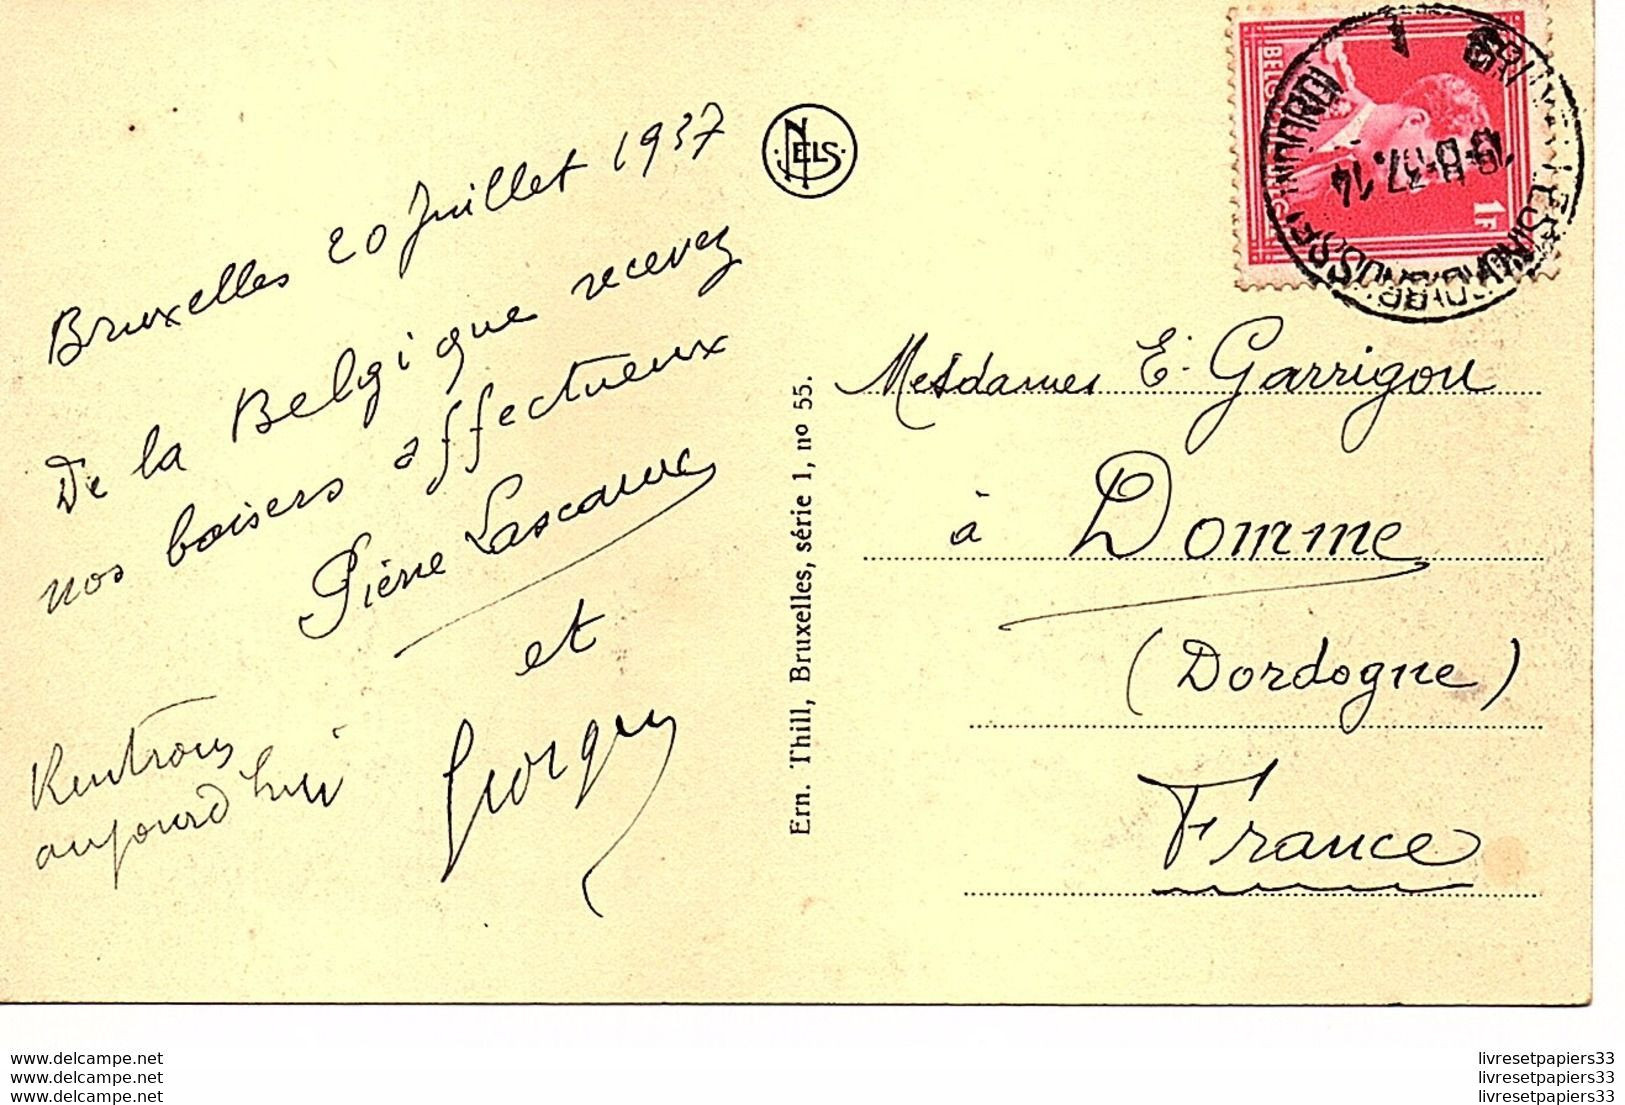 Bruxelles 20 Juillet 1937
De la Belgique recevez
nos baisers affectueux
Pierre
et
Georges
Rentrons
aujourd'hui
NELS
Ern. Thill, Bruxelles, série 1, no 55.
BELGIE
1F
14
Mesdames E. Garrigou
à Domme
(Dordogne)
France
www.delcampe.net
www.delcampe.net
www.delcampe.net
livresetpapiers33
livresetpapiers33
livresetpapiers33